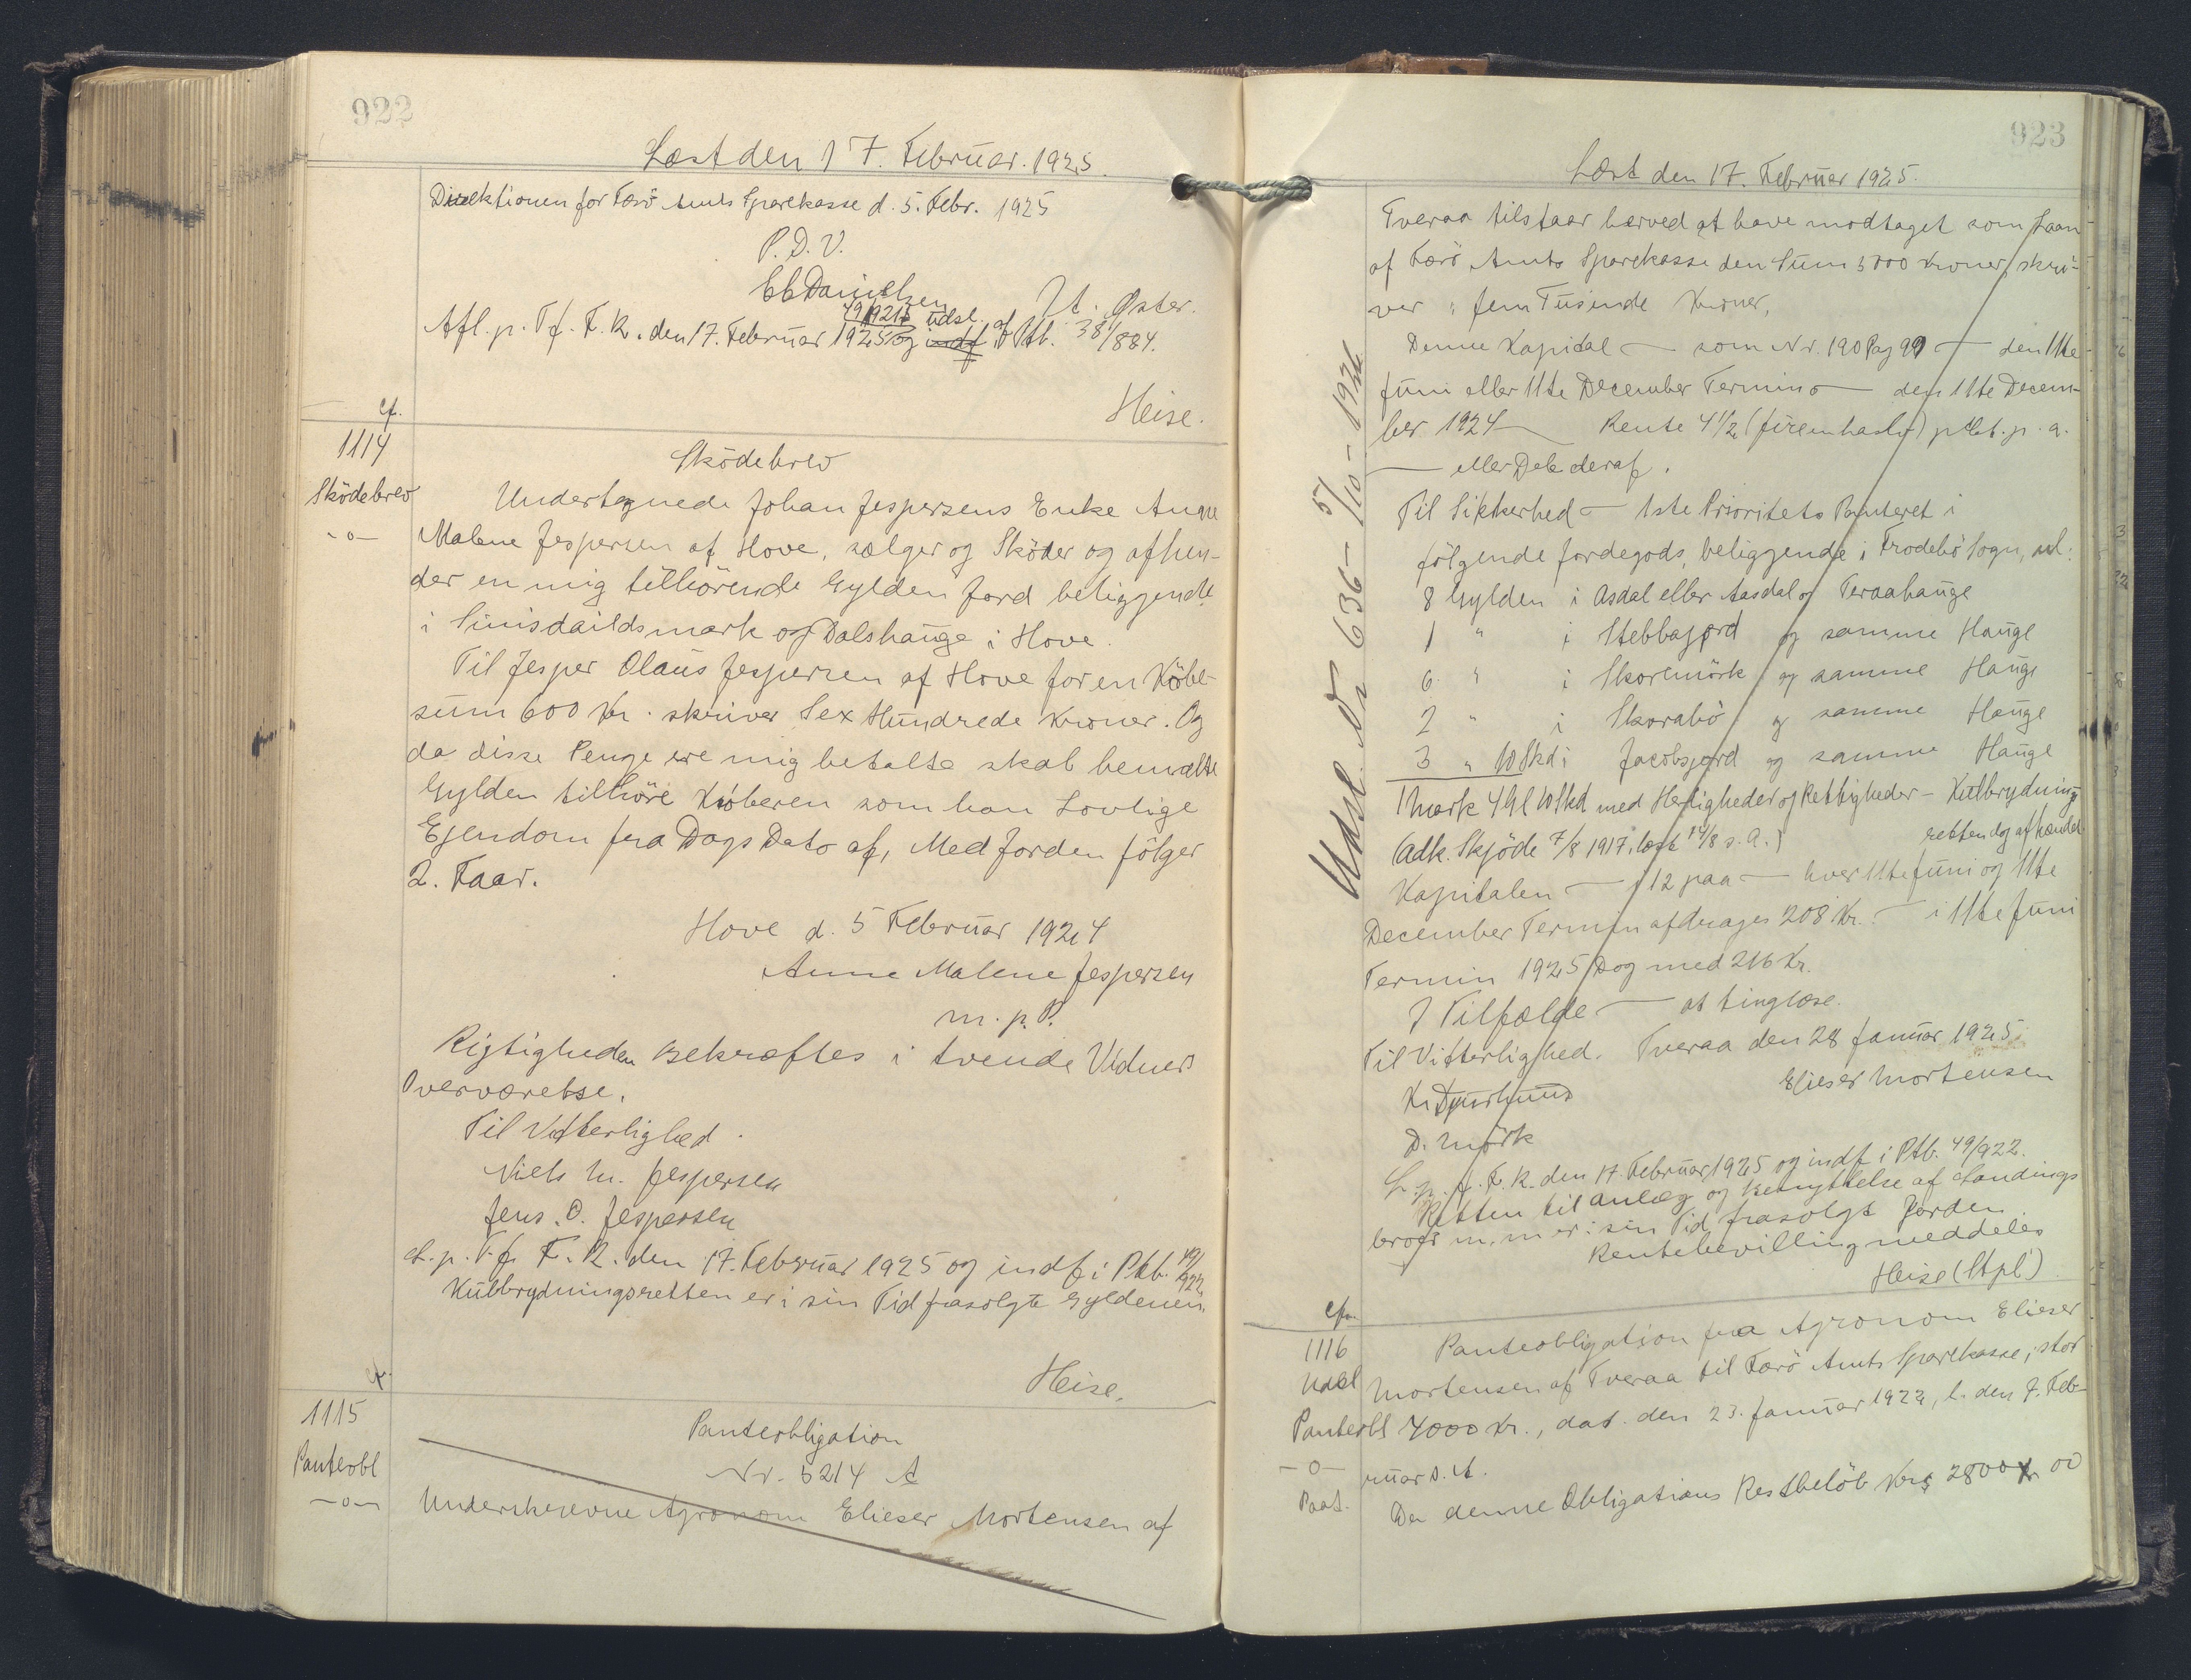 922
Læst den 17. Februar. 1925.
Direktionen for Færö Amts Sparekasse d. 5. Febr. 1925
P. D. V.
CC Danielsen
Jt. Øster.
49/921 udsl.
Afl. p. Tf. F. R. den 17. Februar 1925 og indf. af Ptb. 38/884.
Heise.
cf.
1114
Sködebrev
-o-
Sködebrev
Undertegnede Johan Jespersens Enke Anne
Malene Jespersen af Hove, sælger og Sköder og afhen-
der en mig tilhörende Gylden Jord beliggende
i Simisdailds mark og Dalshauge i Hove.
Til Jesper Olaus Jespersen af Hove for en Köbe-
sum 600 Kr. skriver Sex Hundrede Kroner. Og
da disse Penge ere mig betalte skal bemeldte
Gylden tilhöre Köberen som han Lovlige
Ejendom fra Dags Dato af, Med Jorden fölger
2. Faar.
Hove d. 5 Februar 1924
Anne Malene Jespersen
m. p. P.
Rigtigheden bekræftes i tvende Vidners
Overværelse.
Til Vitterlighed.
Niels M. Jespersen
Jens. O. Jespersen
L. p. T. f. F. R. den 17. Februar 1925 og indf i Ptb. 49/922
Kulbrydningsretten er i sin Tid frasolgte Gyldenen.
Heise.
cf.
1115
Panteobl
-o-
Panteobligation
Nr. 5214 A
Underskrevne Agronom Elieser Mortensen af
923
Læst den 17. Februar 1925.
Tveraa tilstaar herved at have modtaget som Laan
af Færö Amts Sparekasse den Sum 5000 Kroner, skri-
ver: fem Tusende Kroner,
Denne Kapital — som Nr. 190 Pag 99 — den 11te
Juni eller 11te December Termino — den 11te Decem-
ber 1924 — Rente 4½ (fireenhalv) pCt. p. a.
— eller Dele deraf.
Til Sikkerhed — 1ste Prioritets Panteret i
fölgende Jordegods, beliggende i Frodebö Sogn, nl:
8 Gylden i Asdal eller Aasdal og Teraahauge
1 " i Stebbagjord og samme Hauge
6 " i Skoremörk og samme Hauge
2 " i Skorabö og samme Hauge
3 " 10 Skd i Jacobsgjord og samme Hauge
1 Mark 4 Gl 10 Skd med Herligheder og Rettigheder - Kulbrydnings
retten dog afhændet.
(Adk. Skjöde 7/8 1917, læst 14/8 s. A.)
Kapitalen — 12 paa — hver 11te Juni og 11te
December Termin afdrages 208 Kr. — i 11te Juni
Termin 1925 dog med 216 Kr.
I Tilfælde — at tinglæse.
Til Vitterlighed. Tveraa den 28 Januar 1925.
Elieser Mortensen
Kr. Djurhuus
D. Mörk
L. p. f. F. R. den 17. Februar 1925 og indf i Ptb. 49/922.
Retten til anlæg og benyttelse af Landings
broer m. m er i sin Tid frasolgt Jorden
Rentebevilling meddeles
Heise (Stpl)
Udsl. Nr 636 - 5/10 - 1926
cfr.
1116
Udsl
Panteobl
-o-
Paat.
Panteobligation fra Agronom Elieser
Mortensen af Tveraa til Færö Amts Sparekasse, stor
4000 Kr., dat. den 23. Januar 1922, l. den 7. Feb-
ruar s. A.
Da denne Obligations Restbelöb Kr. 2800 Kr 00